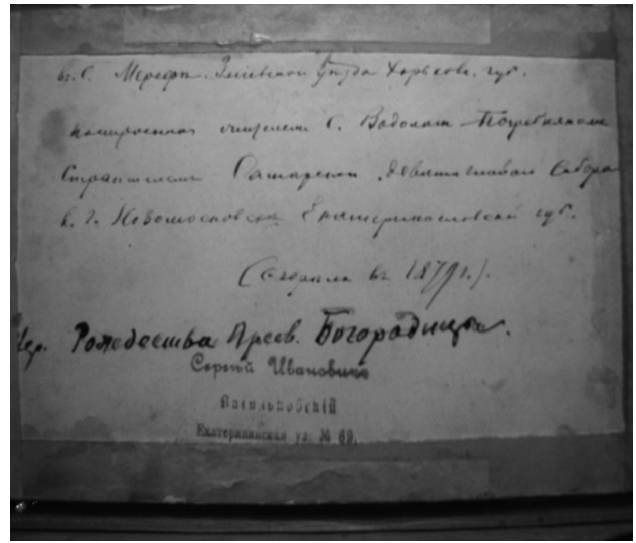 въ С. Мерефа Зміевскаго Уѣзда Харьков. губ.
построенная С. Водолаги Погребнякомъ
Строителемъ девятиглаваго Собора
в. г. Новомосковска Екатеринославской губ.
(Сгорѣла въ 1879 г.).
Цер. Рождества Пресв. Богородицы.
Сергѣй Ивановичъ
Васильковскій
Екатерининская ул. № 69.